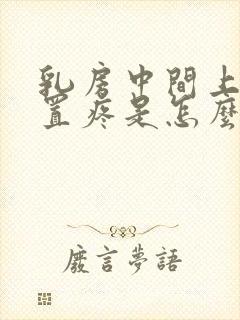 乳房中間上
置疼是怎麼
廢言夢語